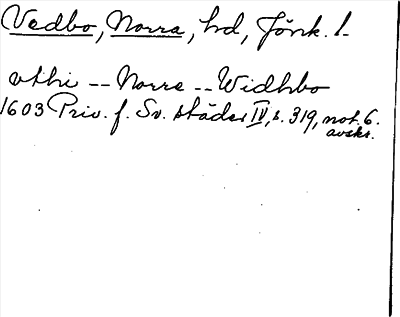 Vedbo, Norra, hd, Jönk. l.
vthi -- Norre -- Widhbo
1603 Priv. f. Sv. städer IV, s. 319, not. 6.
avskr.